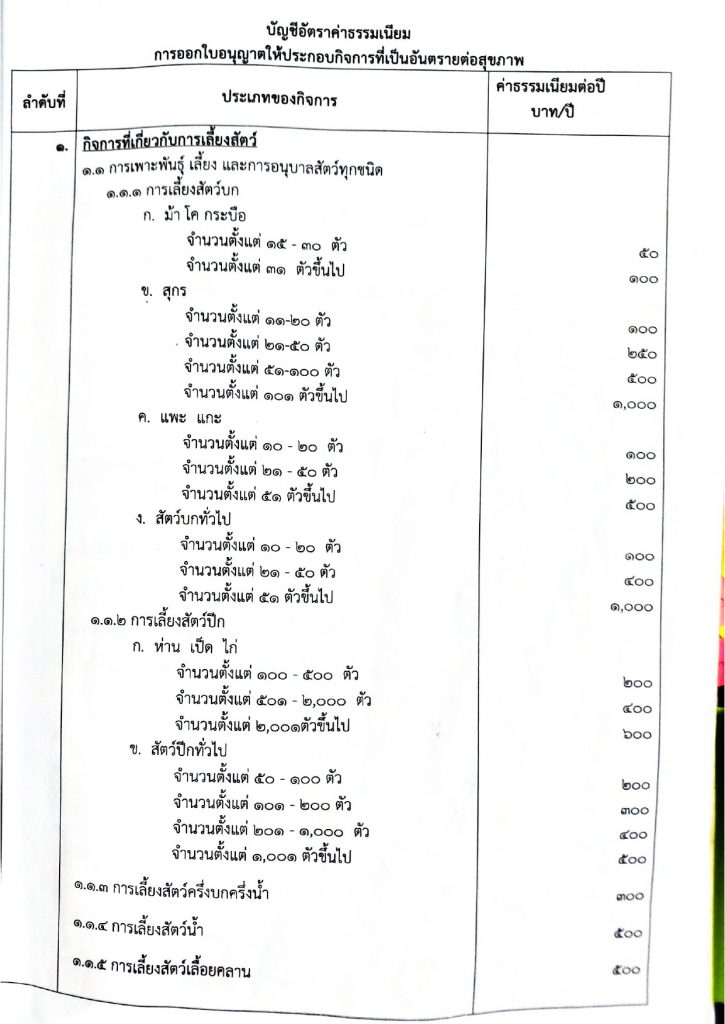 บัญชีอัตราค่าธรรมเนียม
การออกใบอนุญาตให้ประกอบกิจการที่เป็นอันตรายต่อสุขภาพ
ลำดับที่ ประเภทของกิจการ ค่าธรรมเนียมต่อปี
บาท/ปี
๑. กิจการที่เกี่ยวกับการเลี้ยงสัตว์
๑.๑ การเพาะพันธุ์ เลี้ยง และการอนุบาลสัตว์ทุกชนิด
๑.๑.๑ การเลี้ยงสัตว์บก
ก. ม้า โค กระบือ
จำนวนตั้งแต่ ๑๕ - ๓๐ ตัว ๕๐
จำนวนตั้งแต่ ๓๑ ตัวขึ้นไป ๑๐๐
ข. สุกร
จำนวนตั้งแต่ ๑๑-๒๐ ตัว ๑๐๐
จำนวนตั้งแต่ ๒๑-๕๐ ตัว ๒๕๐
จำนวนตั้งแต่ ๕๑-๑๐๐ ตัว ๕๐๐
จำนวนตั้งแต่ ๑๐๑ ตัวขึ้นไป ๑,๐๐๐
ค. แพะ แกะ
จำนวนตั้งแต่ ๑๐ - ๒๐ ตัว ๑๐๐
จำนวนตั้งแต่ ๒๑ - ๕๐ ตัว ๒๐๐
จำนวนตั้งแต่ ๕๑ ตัวขึ้นไป ๕๐๐
ง. สัตว์บกทั่วไป
จำนวนตั้งแต่ ๑๐ - ๒๐ ตัว ๑๐๐
จำนวนตั้งแต่ ๒๑ - ๕๐ ตัว ๔๐๐
จำนวนตั้งแต่ ๕๑ ตัวขึ้นไป ๑,๐๐๐
๑.๑.๒ การเลี้ยงสัตว์ปีก
ก. ห่าน เป็ด ไก่
จำนวนตั้งแต่ ๑๐๐ - ๕๐๐ ตัว ๒๐๐
จำนวนตั้งแต่ ๕๐๑ - ๒,๐๐๐ ตัว ๔๐๐
จำนวนตั้งแต่ ๒,๐๐๑ตัวขึ้นไป ๖๐๐
ข. สัตว์ปีกทั่วไป
จำนวนตั้งแต่ ๕๐ - ๑๐๐ ตัว ๒๐๐
จำนวนตั้งแต่ ๑๐๑ - ๒๐๐ ตัว ๓๐๐
จำนวนตั้งแต่ ๒๐๑ - ๑,๐๐๐ ตัว ๔๐๐
จำนวนตั้งแต่ ๑,๐๐๑ ตัวขึ้นไป ๕๐๐
๑.๑.๓ การเลี้ยงสัตว์ครึ่งบกครึ่งน้ำ ๓๐๐
๑.๑.๔ การเลี้ยงสัตว์น้ำ ๕๐๐
๑.๑.๕ การเลี้ยงสัตว์เลื้อยคลาน ๕๐๐